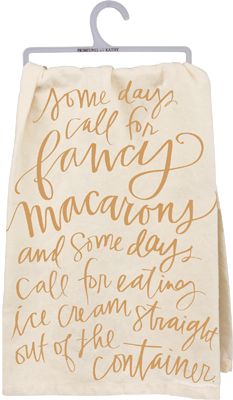 PRIMITIVES BY KATHY
some days
call for
fancy
macarons
and some days
call for eating
ice cream straight
out of the
container.